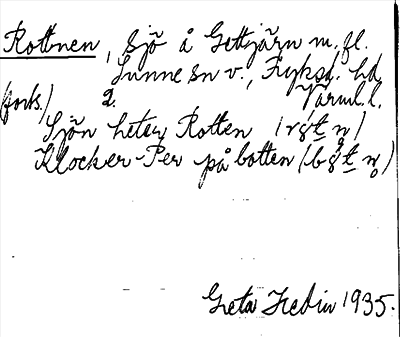 Rottnen, Sjö å Gettjärn m. fl.
Sunne sn v., Fryksd. hd
(forts.) 2. Värml. l.
Sjön heter Rotten
Klocker-Per på botten
Greta Hedin 1935.